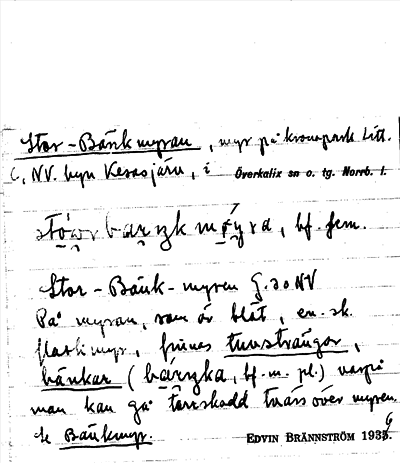 Stor-Bänkmyran, myr på kronopark Litt.
C, NV. byn Kesasjärv, i Överkalix sn o. tg. Norrb. l.
bf. fem.
Stor-Bänk-myren G.30 NV
På myran, som är blöt, en s.k.
flarkmyr, finnes tuvsträngar,
bänkar ( bf. m. pl.) varpå
man kan gå torrskodd tvärs över myren.
Se Bänkmyr. EDVIN BRÄNNSTRÖM 1936